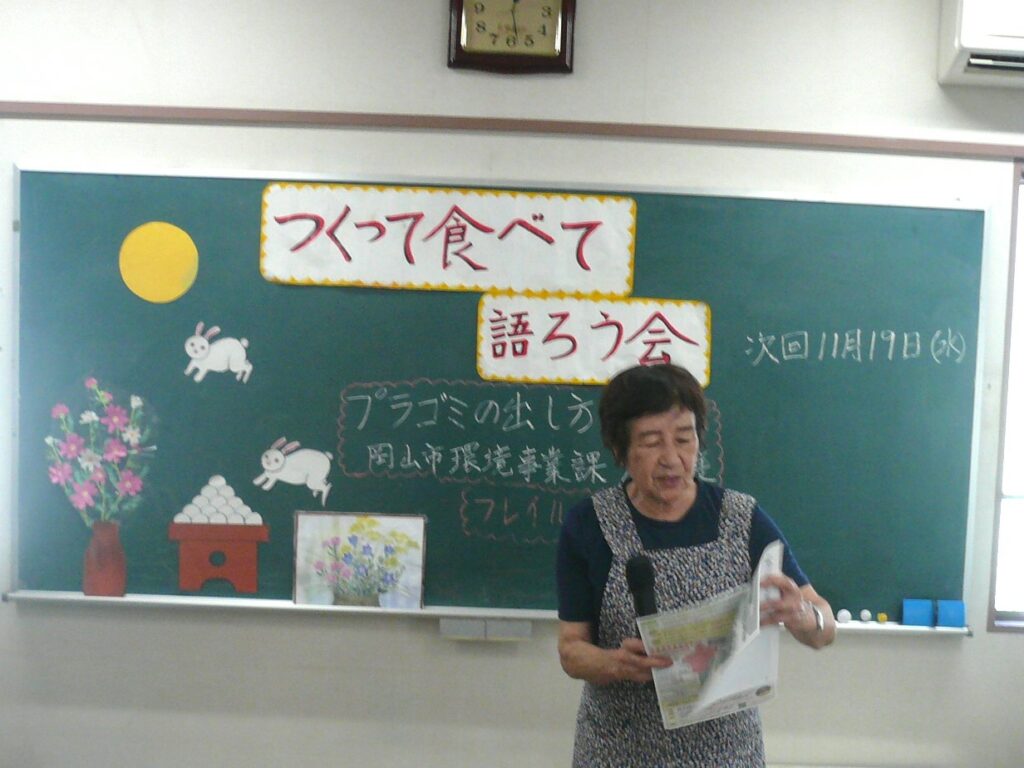 つくって食べて
語ろう会
次回11月19日(水)
プラゴミの出し方
岡山市環境事業課
フレイル
9 3
8 4
7 6 5